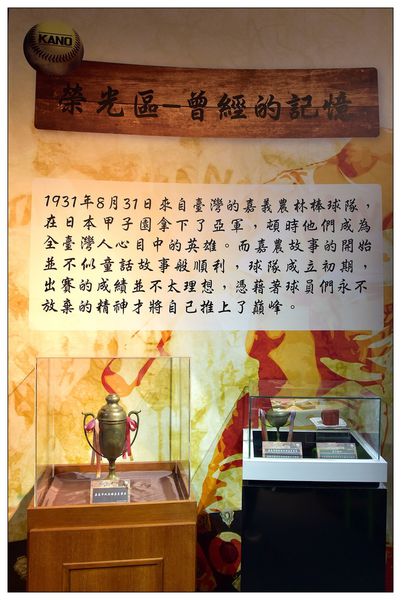 KANO
榮光區－曾經的記憶
1931年8月31日來自臺灣的嘉義農林棒球隊，
在日本甲子園拿下了亞軍，頓時他們成為
全臺灣人心目中的英雄。而嘉農故事的開始
並不似童話故事般順利，球隊成立初期，
出賽的成績並不太理想，憑藉著球員們永不
放棄的精神才將自己推上了巔峰。